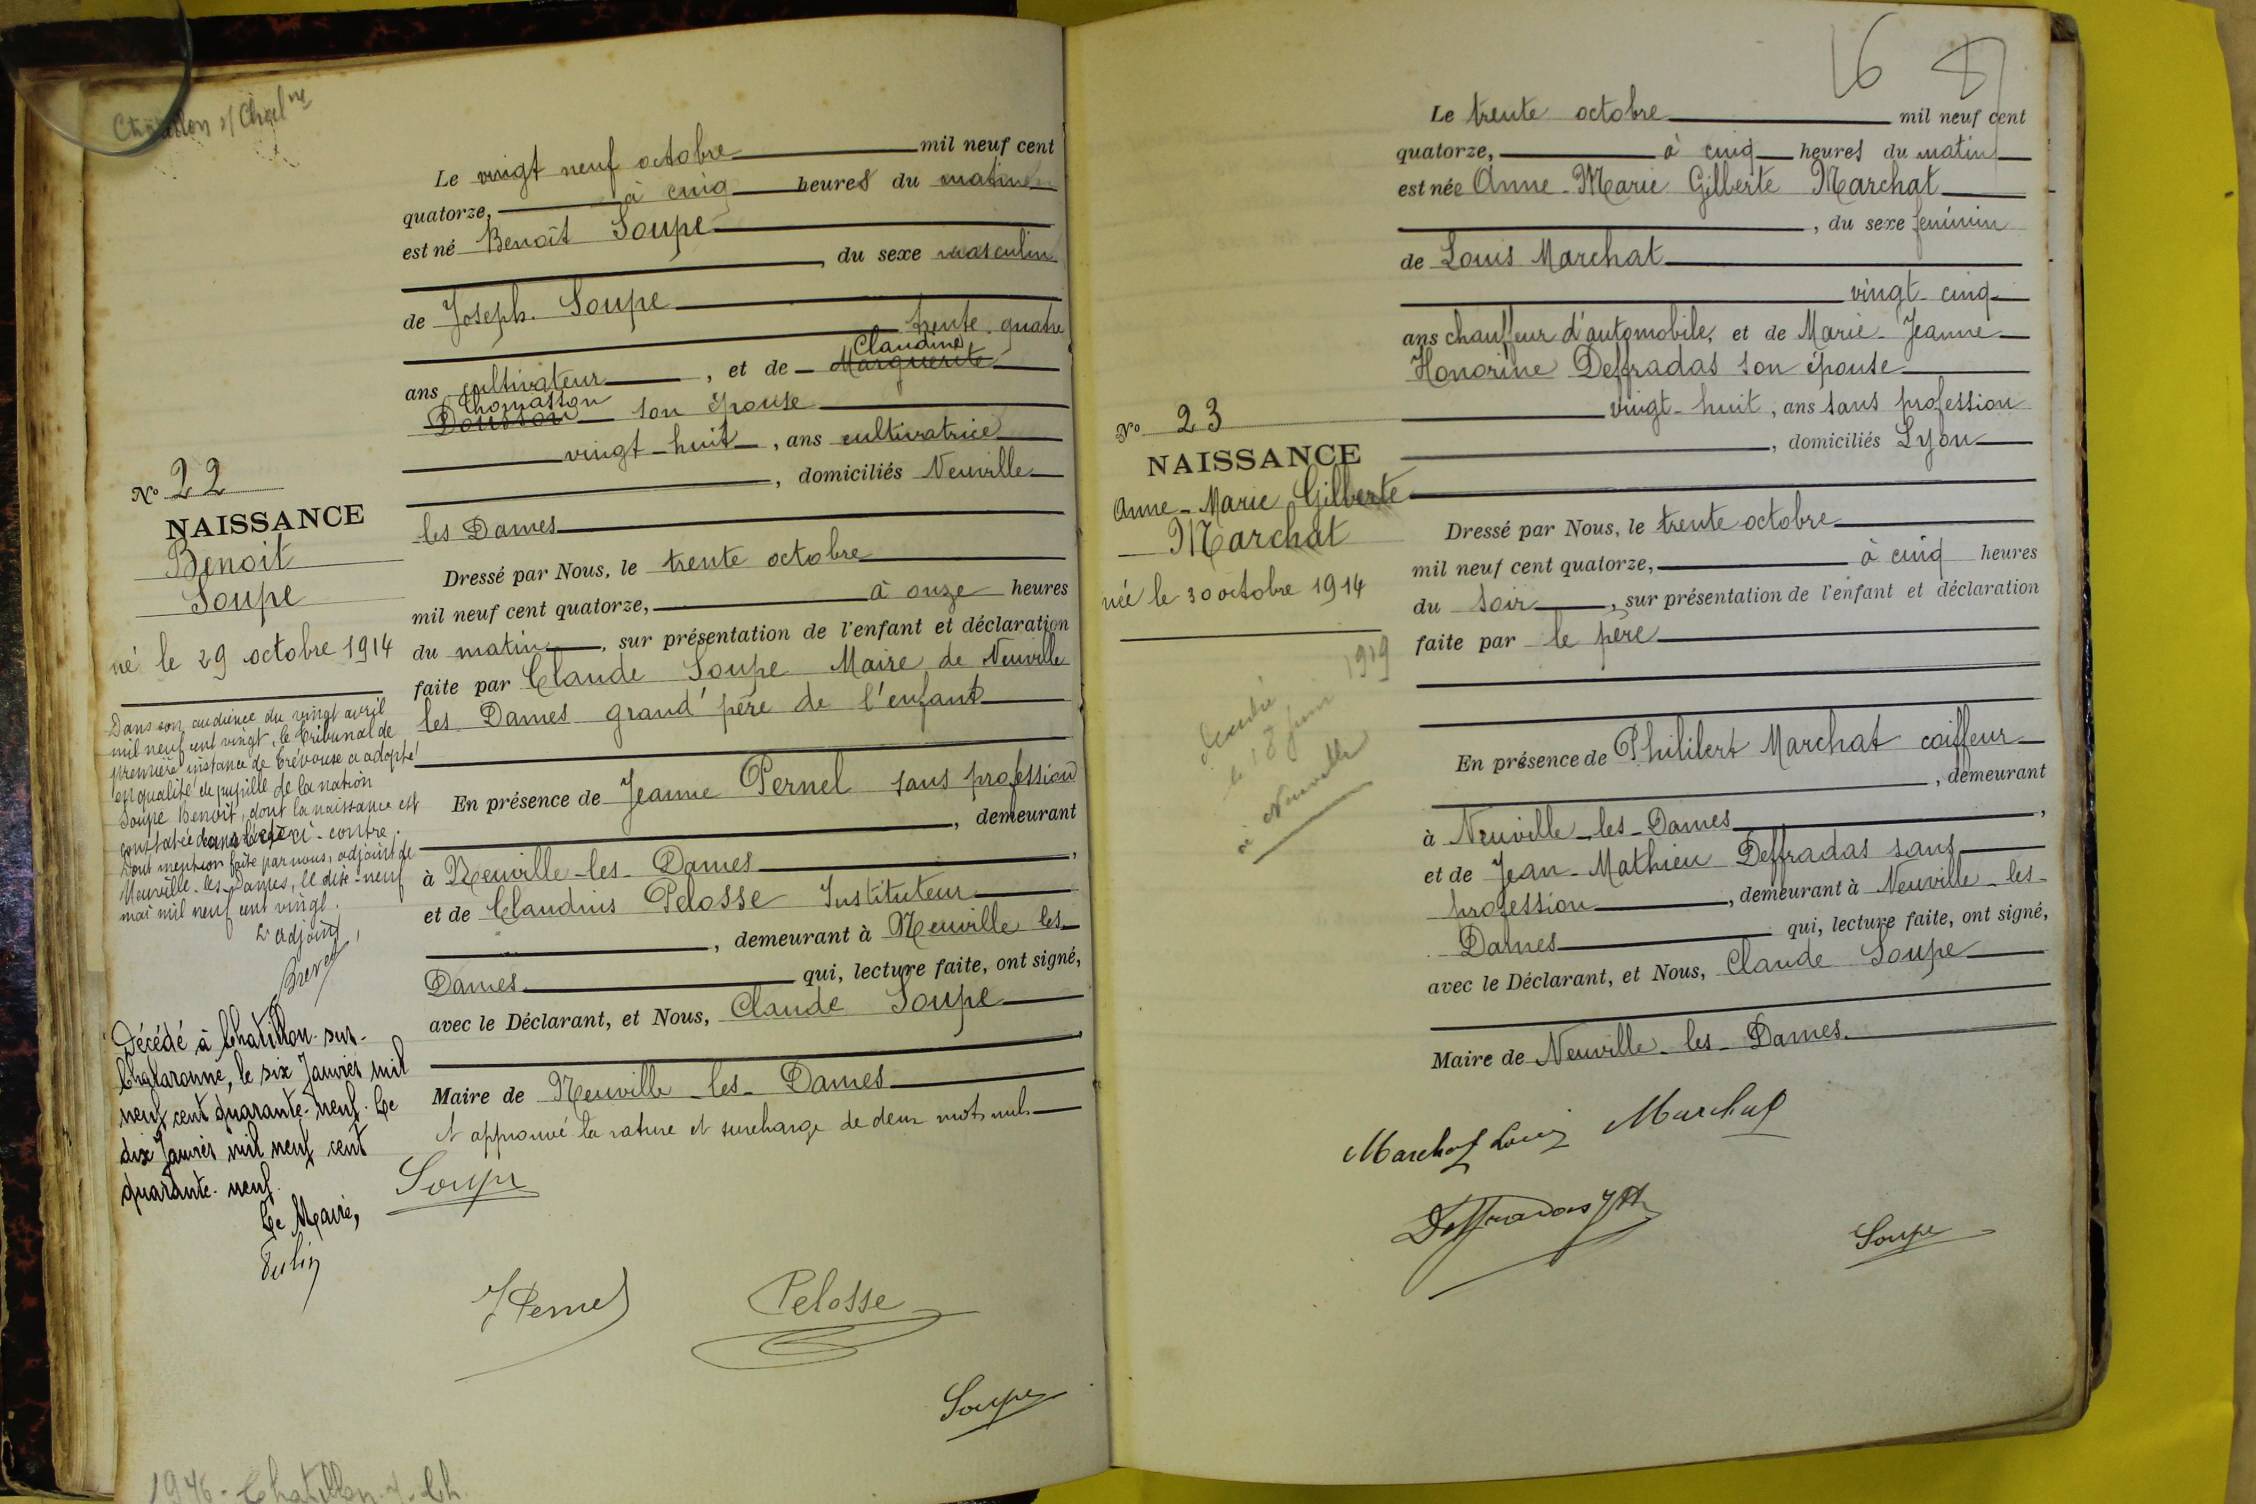 Châtillon s/ Chal^ne
Le vingt neuf octobre mil neuf cent
quatorze, à cinq heures du matin
est né Benoît Soupe
, du sexe masculin
de Joseph Soupe
trente quatre
Claudine
ans cultivateur, et de Marguerite
Thomasson
son épouse
vingt-huit, ans cultivatrice
, domiciliés Neuville
les Dames
Dressé par Nous, le trente octobre
mil neuf cent quatorze, à onze heures
du matin, sur présentation de l'enfant et déclaration
faite par Claude Soupe Maire de Neuville
les Dames grand'père de l'enfant
En présence de Jeanne Pernel sans profession
, demeurant
à Neuville-les-Dames,
et de Claudius Pelosse Instituteur
, demeurant à Neuville les
Dames qui, lecture faite, ont signé,
avec le Déclarant, et Nous, Claude Soupe
Maire de Neuville-les-Dames
et approuvé la rature et surcharge de deux mots nuls
Soupe
J Pernel
Pelosse
Soupe
N° 22
NAISSANCE
Benoit
Soupe
né le 29 octobre 1914
Dans son audience du vingt avril
mil neuf cent vingt, le tribunal de
première instance de Trévoux a adopté
en qualité de pupille de la nation
Soupe Benoît, dont la naissance est
constatée dans l'acte ci-contre.
Dont mention faite par nous, adjoint de
Neuville-les-Dames, le dix-neuf
mai mil neuf cent vingt.
L'adjoint,
Décédé à Chatillon-sur-
Chalaronne, le six Janvier mil
neuf cent quarante-neuf. Le
dix Janvier mil neuf cent
quarante-neuf.
Le Maire,
1946 - Chatillon s. Ch.
16 8
Le trente octobre mil neuf cent
quatorze, à cinq heures du matin
est née Anne-Marie Gilberte Marchat
, du sexe féminin
de Louis Marchat
vingt-cinq
ans chauffeur d'automobile, et de Marie-Jeanne
Honorine Deffradas son épouse
vingt-huit, ans sans profession
, domiciliés Lyon
Dressé par Nous, le trente octobre
mil neuf cent quatorze, à cinq heures
du soir, sur présentation de l'enfant et déclaration
faite par le père
En présence de Philibert Marchat coiffeur
, demeurant
à Neuville-les-Dames,
et de Jean-Mathieu Deffradas sans
profession, demeurant à Neuville-les-
Dames qui, lecture faite, ont signé,
avec le Déclarant, et Nous, Claude Soupe
Maire de Neuville-les-Dames
Marchat Louis Marchat
Deffradas JM
Soupe
N° 23
NAISSANCE
Anne-Marie Gilberte
Marchat
née le 30 octobre 1914
le 18 juin 1919
à Neuville